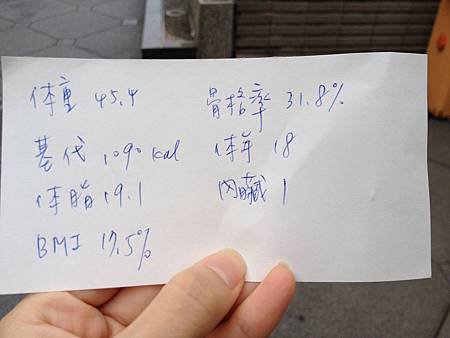 体重 45.4
基代 1090 kcal
体脂 19.1
BMI 17.5%
骨格率 31.8%
体年 18
內臟 1